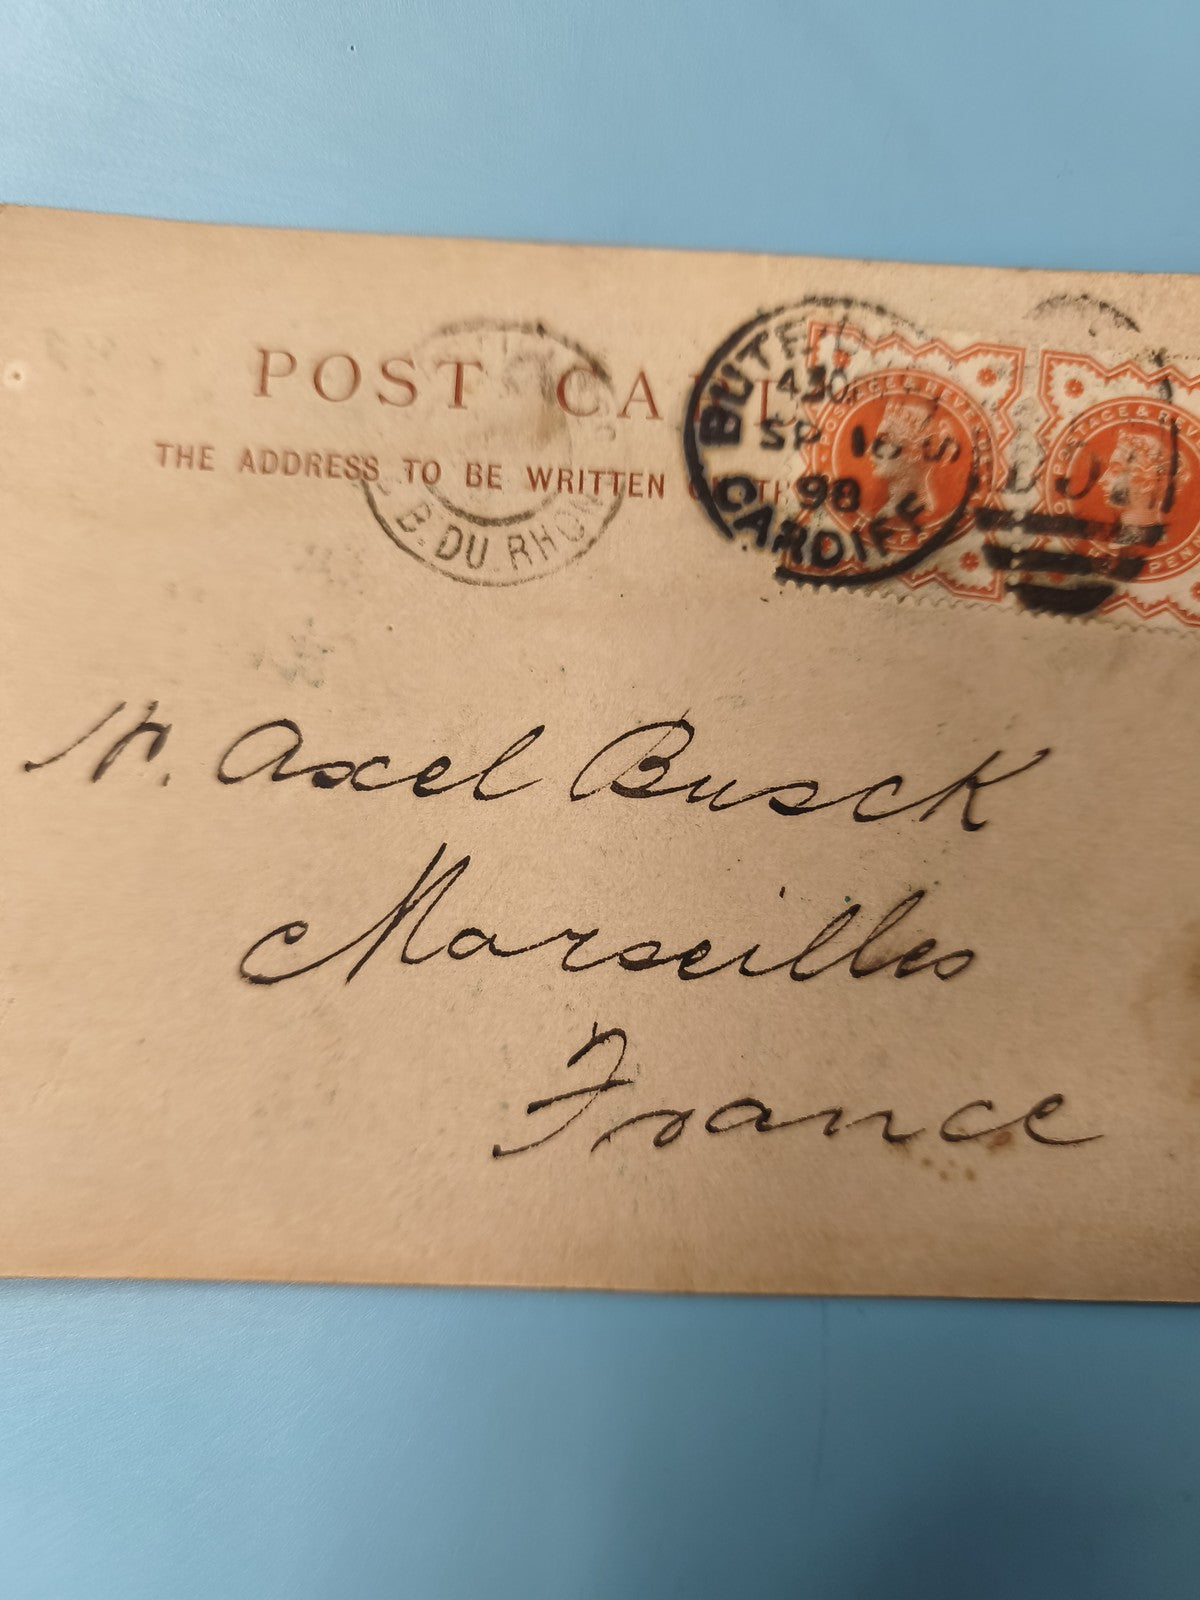 POST CARD
THE ADDRESS TO BE WRITTEN ON TH
B. DU RHONE
BUTE
430
SP 16
98
CARDIFF
POSTAGE & REVENUE
POSTAGE & REV
Axel Busck
Marseilles
France